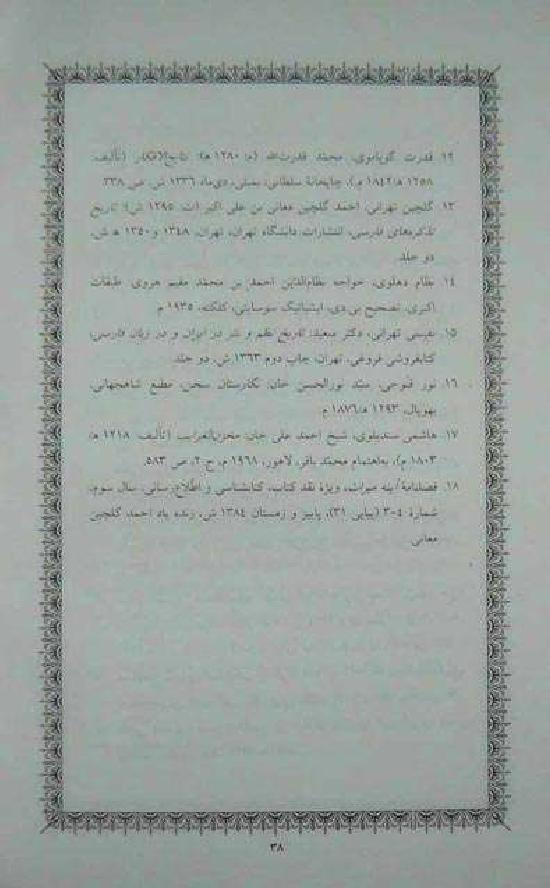 ۱۲. قدرت گوپاموی، محمد قدرت‌الله (م: ۱۲۸۰ ه): نتایج‌الافکار (تألیف:
۱۲۵۸ ه/۱۸۴۲ م)، چاپخانهٔ سلطانی، بمبئی، دی‌ماه ۱۳۳۶ ش، ص ۳۳۸.
۱۳. گلچین تهرانی، احمد گلچین معانی بن علی اکبر (ت: ۱۲۹۵ ش): تاریخ
تذکره‌های فارسی، انتشارات دانشگاه تهران، تهران، ۱۳۴۸ و ۱۳۵۰ ه ش،
دو جلد.
۱۴. نظام دهلوی، خواجه نظام‌الدّین احمد بن محمّد مقیم هروی: طبقات
اکبری، تصحیح بی.دی، ایشیاتیک سوسایتی، کلکته، ۱۹۳۵ م.
۱۵. نفیسی تهرانی، دکتر سعید: تاریخ نظم و نثر در ایران و در زبان فارسی،
کتابفروشی فروغی، تهران، چاپ دوم ۱۳۶۳ ش، دو جلد.
۱۶. نور قنوجی، سیّد نورالحسن خان: نگارستان سخن، مطبع شاهجهانی،
بهوپال، ۱۲۹۳ ه/۱۸۷۶ م.
۱۷. هاشمی سندیلوی، شیخ احمد علی خان: مخزن‌الغرایب (تألیف: ۱۲۱۸ ه/
۱۸۰۳ م)، به‌اهتمام محمّد باقر، لاهور، ۱۹۶۸ م، ج ۲، ص ۵۸۳.
۱۸. فصلنامهٔ آینه میراث، ویژهٔ نقد کتاب، کتابشناسی و اطّلاع‌رسانی، سال سوم،
شمارهٔ ۴-۳ (پیاپی ۳۱)، پاییز و زمستان ۱۳۸۴ ش، زنده یاد احمد گلچین
معانی.
۳۸